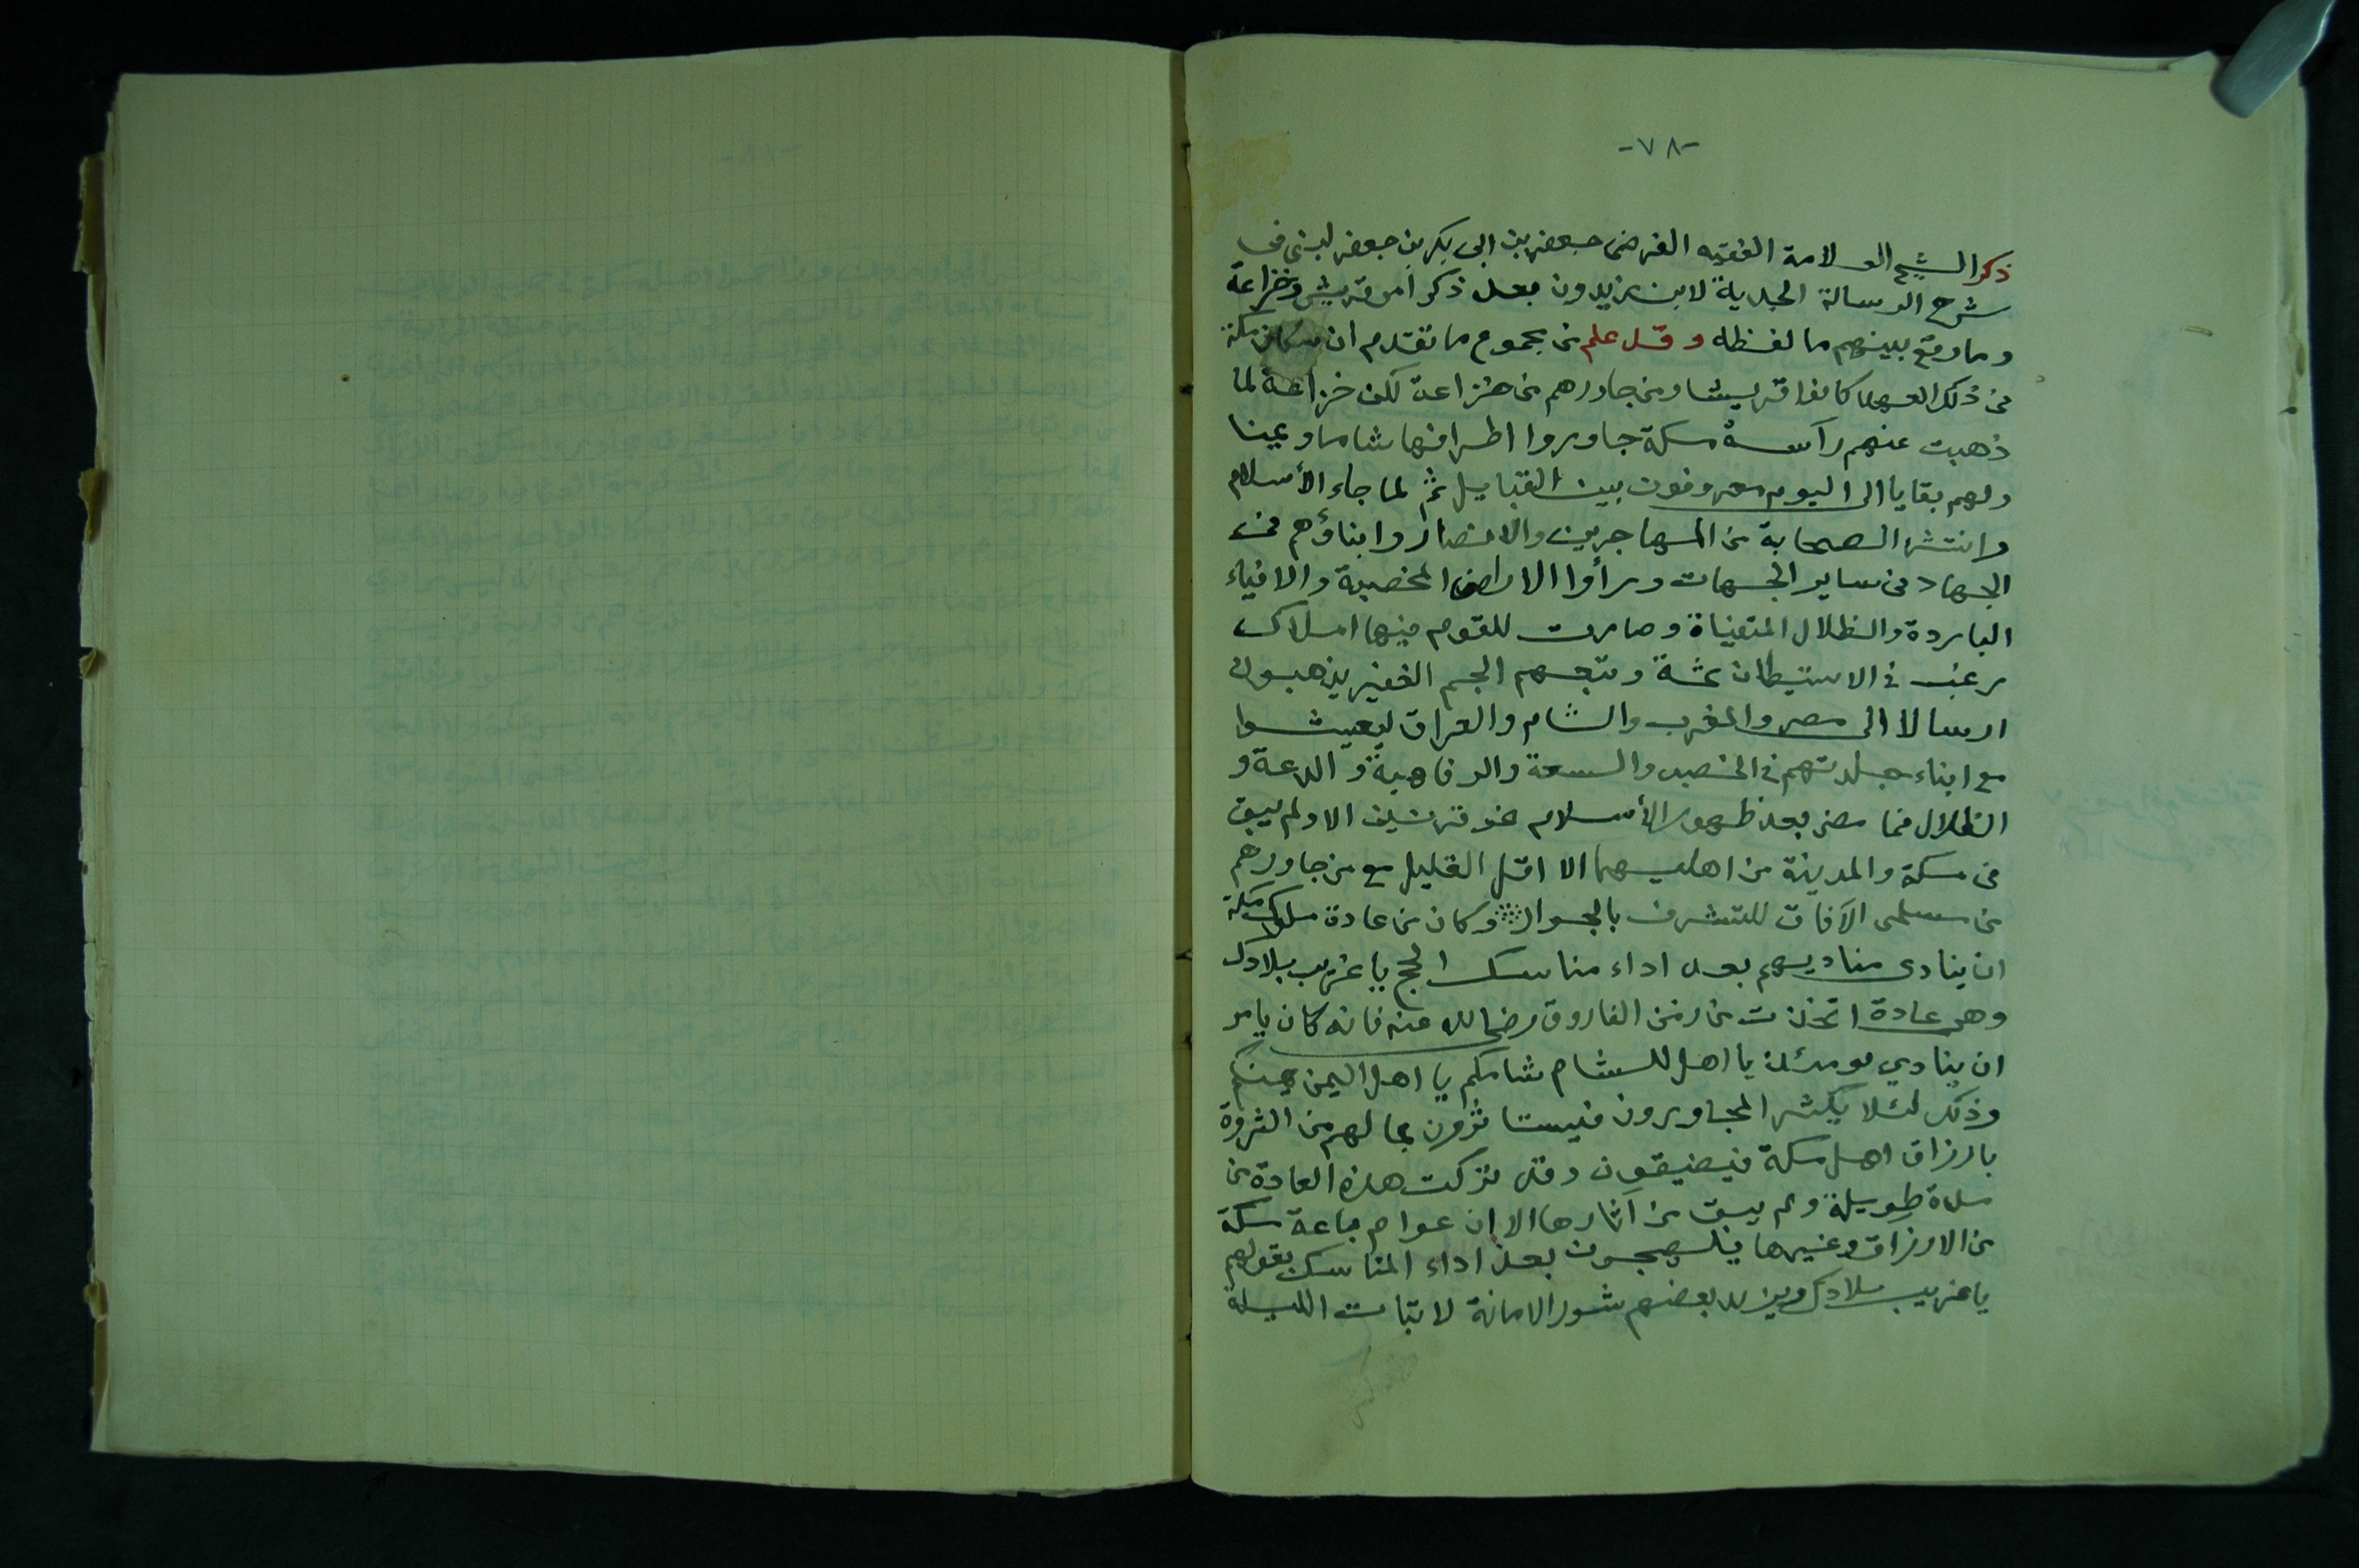 -٧٨-
ذكر الشيخ العلامة الفقيه الفرضى جعفر بن ابى بكر بن جعفر لبني فى
شرح الرسالة الجدية لابن زيدون بعد ذكر امر قريش وخزاعة
وما وقع بينهم ما لفظه وقد علم من مجموع ما تقدم ان سكان مكة
فى ذلك العهد كانوا قريشا ومن جاورهم من خزاعة لكن خزاعة لما
ذهبت عنهم رآسة مكة جاوروا اطرافها شاما ويمنا
ولهم بقايا الى اليوم معروفون بين القبايل ثم لما جاء الأسلام
وانتشر الصحابة من المهاجرين والانصار وابناؤهم فى
الجهاد فى ساير الجهات ورأوا الاراضى المخصبة والافياء
الباردة والظلال المتفيأة وصارت للقوم فيها املاك
رغب فى الاستيطان ثمة وتبعهم الجم الغفير يذهبون
ارسالا الى مصر والمغرب والشام والعراق ليعيشوا
مع ابناء جلدتهم فى الخصب والسعة والرفاهية والدعة و
الظلال فما مضى بعد ظهور الأسلام نحو قرنين الا ولم يبق
فى مكة والمدينة من اهليهما الا اقل القليل مع من جاورهم
من مسلمى الآفاق للتشرف بالجوار وكان من عادة ملوك مكة
ان ينادى مناديهم بعد اداء مناسك الحج يا غريب بلادك
وهى عادة اتخذت من زمن الفاروق رضى الله عنه فانه كان يامر
ان ينادي يومئذ يا اهل الشام شامكم يا اهل اليمن يمنكم
وذلك لئلا يكثر المجاورون فيستأثرون بما لهم من الثروة
بارزاق اهل مكة فيضيقون وقد تركت هذه العادة من
مدة طويلة ولم يبق من آثارها الا ان عوام باعة مكة
من الارزاق وغيرها يلهجون بعد اداء المناسك بقولهم
يا غريب بلادك ويزيد بعضهم شور الامانة لا تبات الليلة